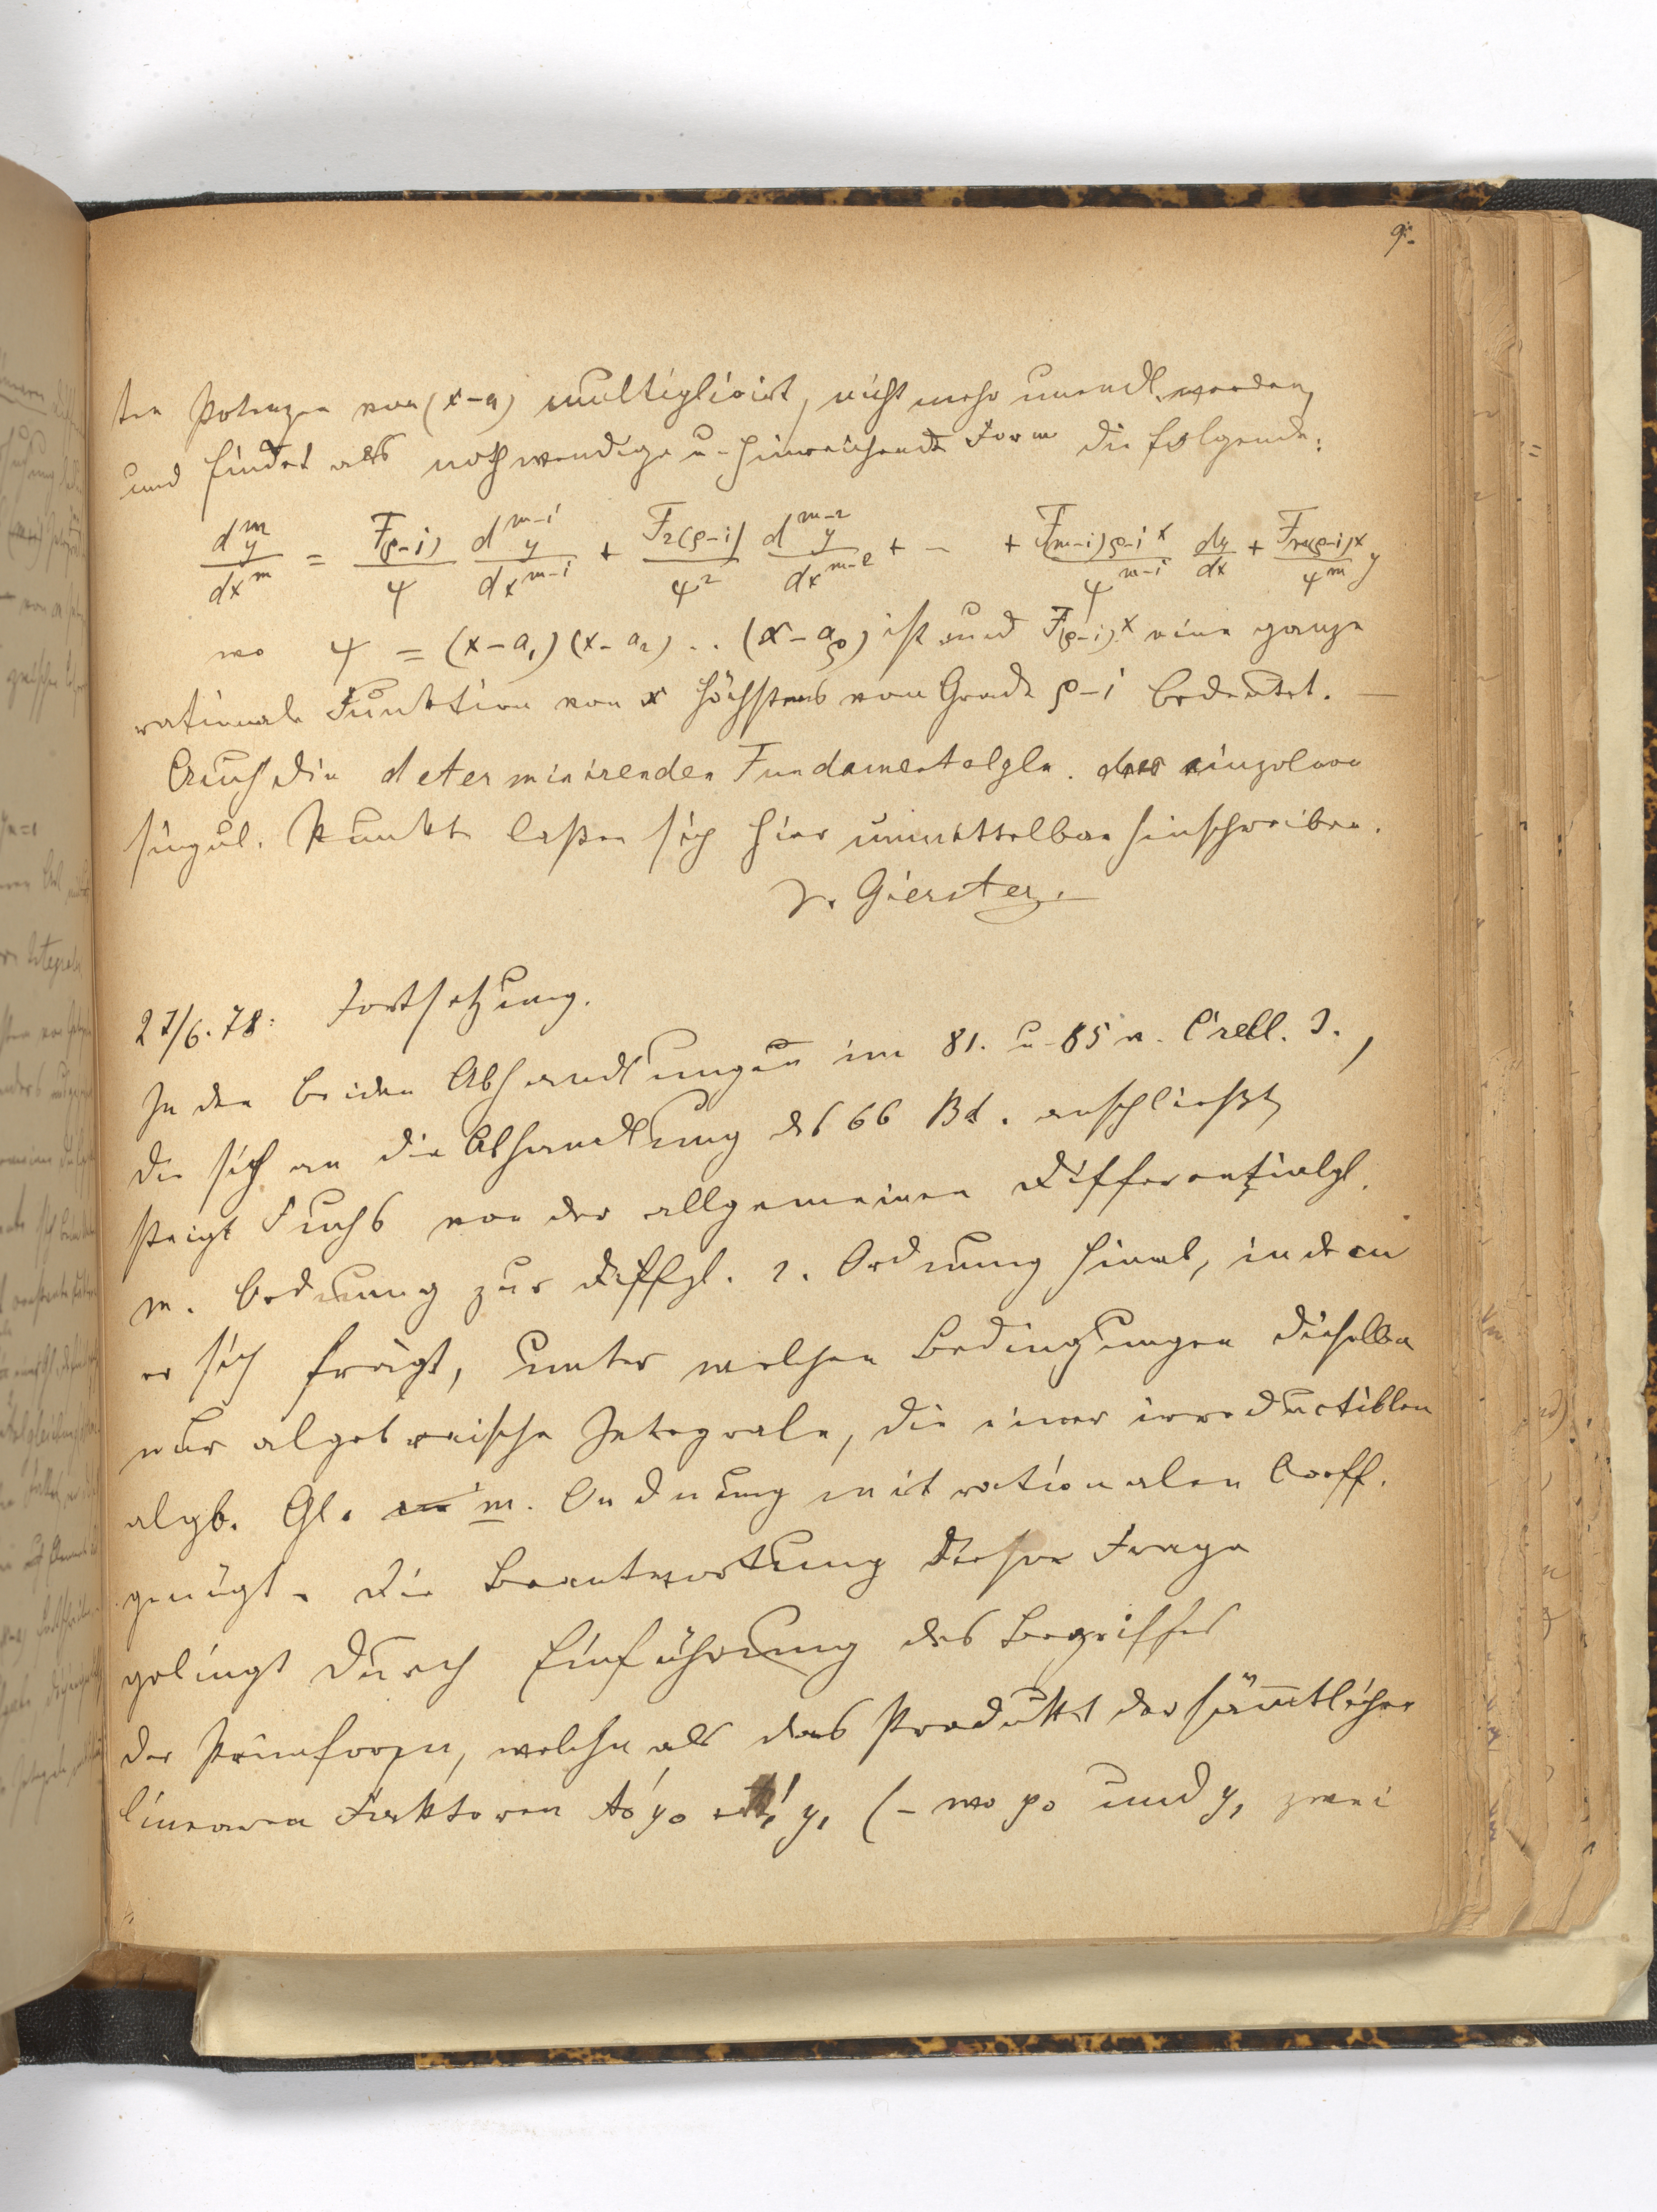 9.
ten Potenzen von (x-a) multiplicirt, nicht mehr unendl. werden,
und findet als nothwendige u. hinreichende Form die folgende:
d^m y/dx^m = F(ρ-1)/ψ d^{m-1}y/dx^{m-1} + F2(ρ-1)/ψ^2 d^{m-2}y/dx^{m-2} + - + F(m-1)ρ-1 x/ψ^{m-1} dy/dx + Fm(ρ-1)x/ψ^m y
wo ψ = (x-a₁)(x-a₂) .. (x-aρ) ist und F(ρ-1)x eine ganze
rationale Funktion von x höchstens vom Grade ρ-1 bedeutet. —
Auch die determinirenden Fundamentalgln. der einzelnen
singul. Punkte laßen sich hier unmittelbar hinschreiben.
J. Gierster.
27/6.78: Fortsetzung.
In den beiden Abhandlungen im 81. u. 85 v. Crell. J.,
die sich an die Abhandlung des 66 Bd. anschließt,
steigt Fuchs von der allgemeinen Differentialgl.
m. Ordnung zur Diffgl. 2. Ordnung hinab, indem
er sich frägt, unter welchen Bedingungen dieselbe
nur algebraische Integrale, die einer irreductiblen
algb. Gl. m. Ordnung mit rationalen Coeff.
genügt. Die Beantwortung dieser Frage
gelingt durch Einführung des Begriffes
der Primformen, welche als das Produkt der sämmtlicher
linearen Faktoren y₀ y₁ (- wo y₀ und y₁ zwei